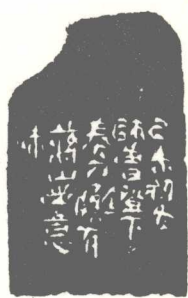 己未初
師曾下
奏刀頗有
蔣山堂意
味